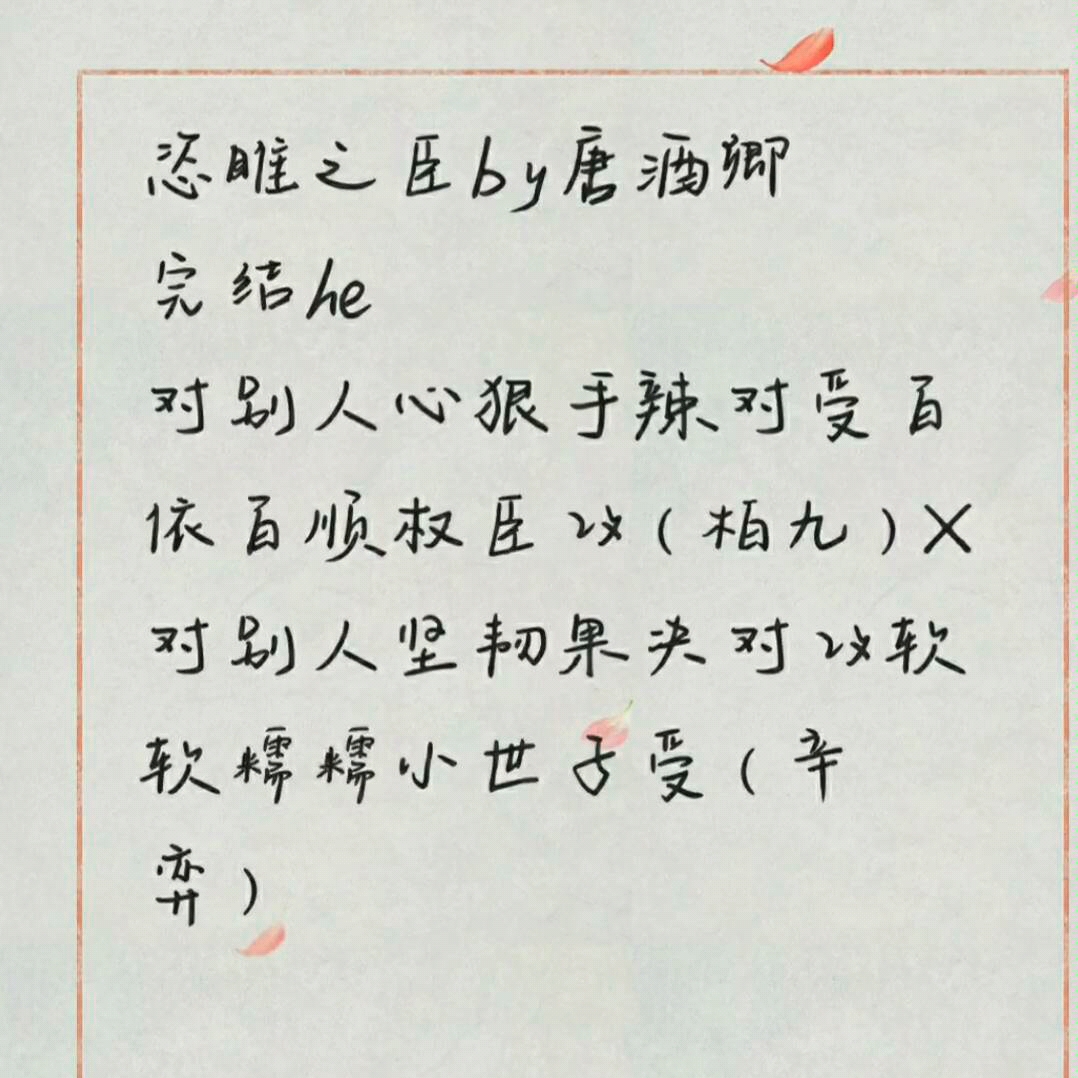 恣睢之臣by唐酒卿
完结he
对别人心狠手辣对受百
依百顺权臣攻(柏九)X
对别人坚韧果决对攻软
软糯糯小世子受(辛
弈)